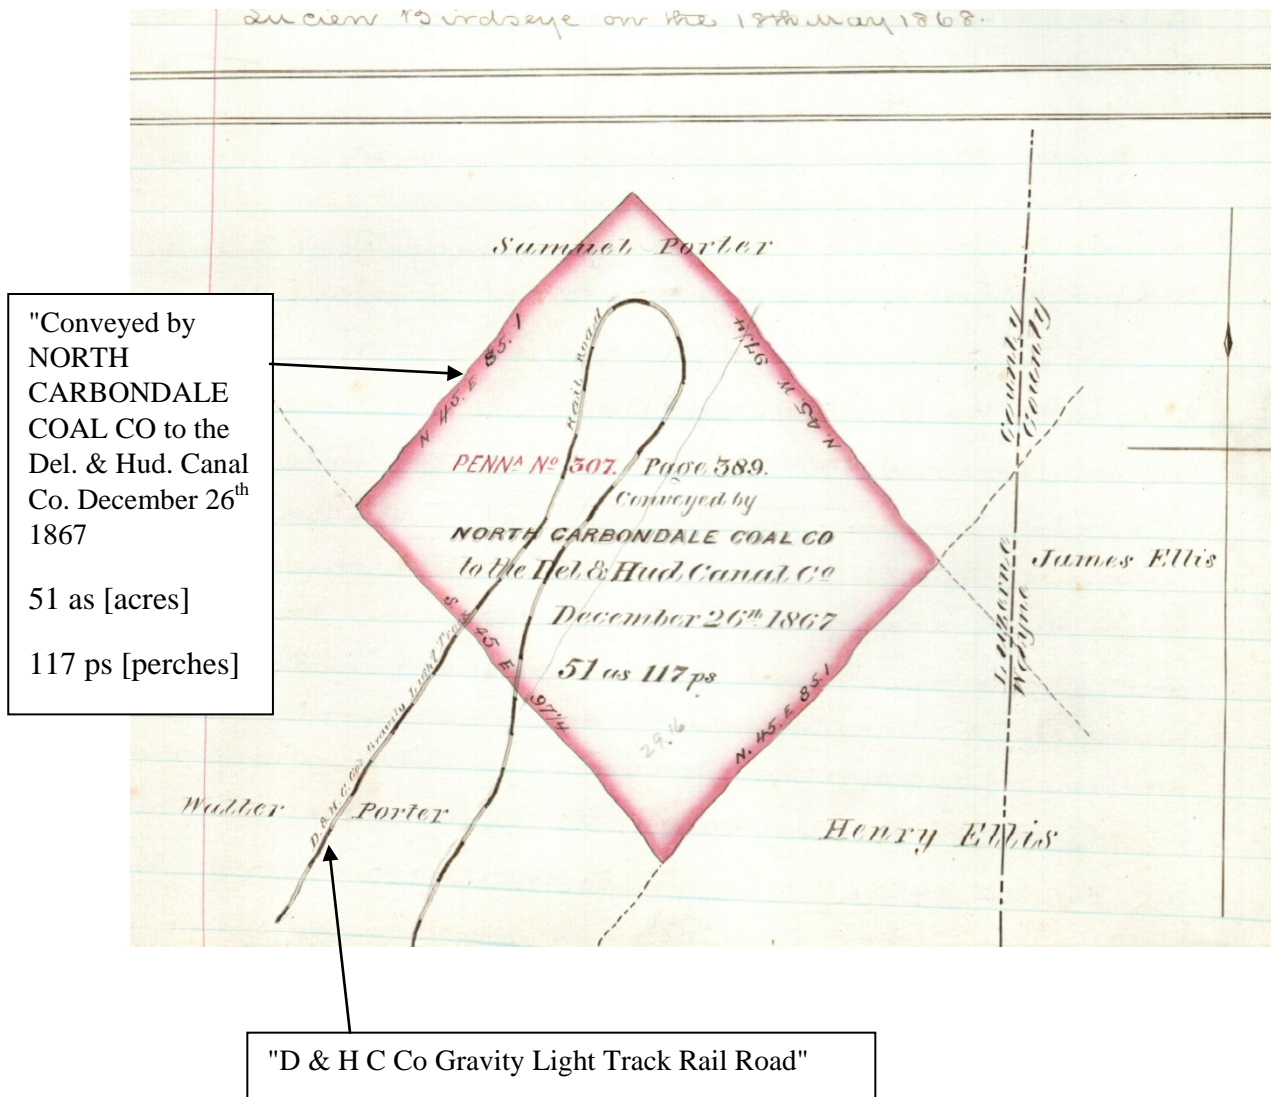 Lucien Birdseye on the 18th May 1868.
Samuel Porter
"Conveyed by
NORTH
CARBONDALE
COAL CO to the
Del. & Hud. Canal
Co. December 26th
1867
51 as [acres]
117 ps [perches]
N 45. E 85.1
N. 45 W 97¼
Rail Road
County
County
PENNA No 307. Page 389.
Conveyed by
NORTH CARBONDALE COAL CO
to the Del & Hud Canal Co
December 26th 1867
51 as 117 ps
29.16
James Ellis
Luzerne
Wayne
S. 45 E 97¼
N. 45. E 85.1
D. & H. C. Co's Gravity Light Track
Walter Porter
Henry Ellis
"D & H C Co Gravity Light Track Rail Road"